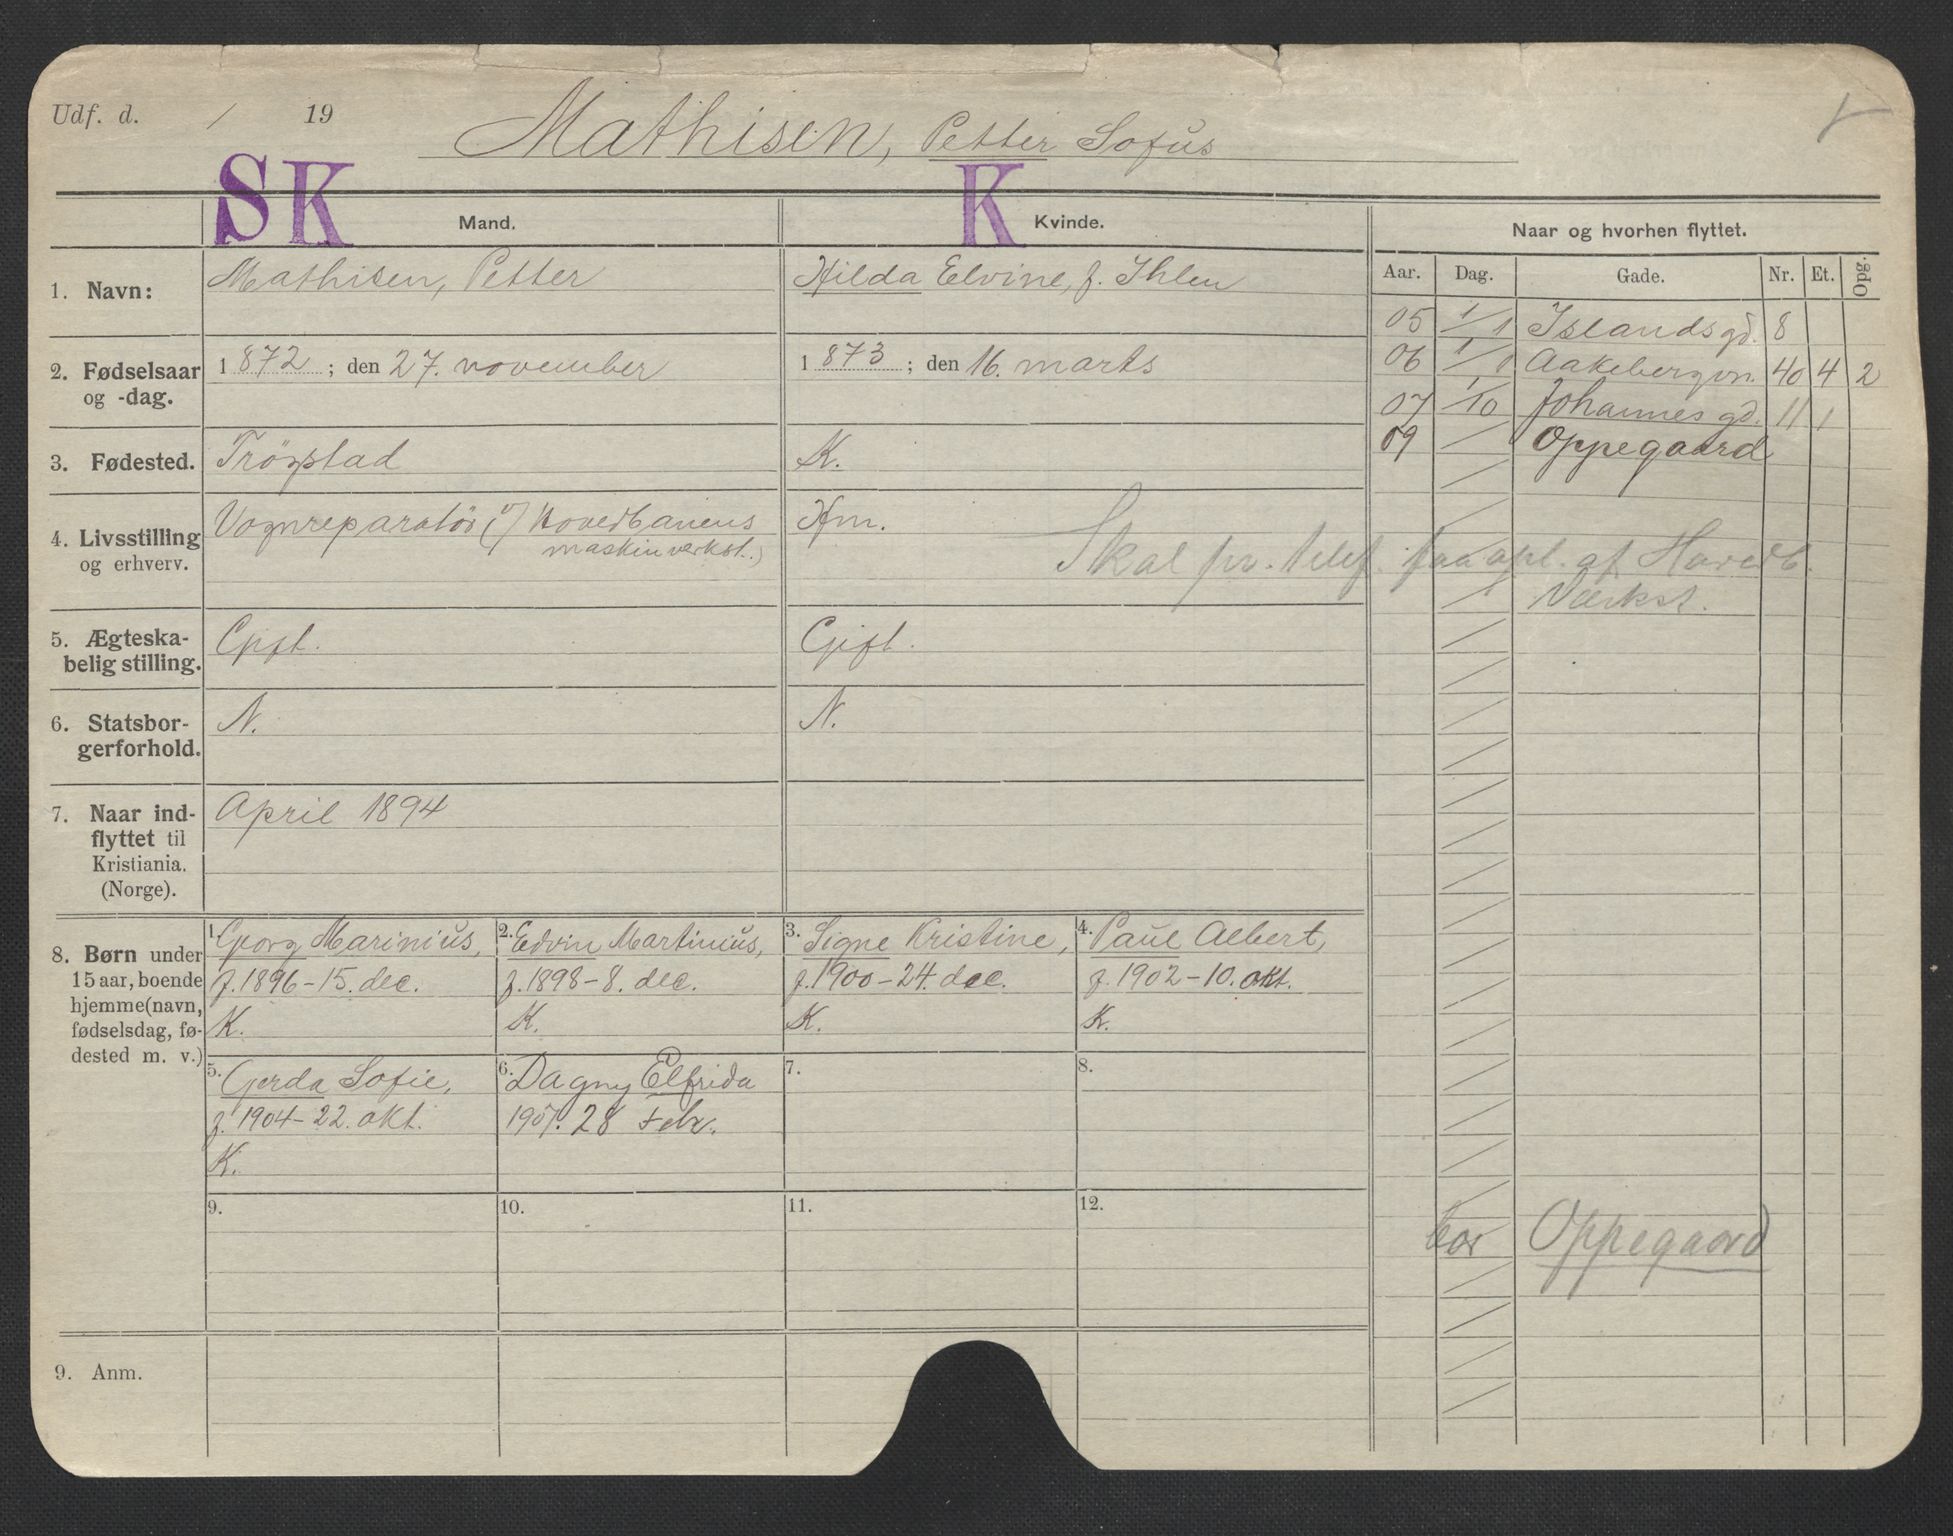 Udf. d. / 19
Mathisen, Petter Sofus
SK K
Mand. Kvinde. Naar og hvorhen flyttet.
Aar. Dag. Gade. Nr. Et. Opg.
1. Navn: Mathisen, Petter Hilda Elvine, f. Ihlen
05 1/1 Islandsgd. 8
06 1/1 Aakebergvn. 40 4 2
07 1/10 Johannesgd. 11 1
09 / Oppegaard
2. Fødselsaar og -dag. 1872; den 27. november 1873; den 16. marts
3. Fødested. Trögstad K.
4. Livsstilling og erhverv. Vognreparatör (v/ Hovedbanens
maskinverkst.) Hm.
Skal pr. telef. faa opl. af Hovedb.
Værkst.
5. Ægteska-
belig stilling. Gift. Gift.
6. Statsbor-
gerforhold. N. N.
7. Naar ind-
flyttet til
Kristiania.
(Norge). April 1894
8. Børn under
15 aar, boende
hjemme (navn,
fødselsdag, fø-
dested m. v.)
1. Georg Marinius,
f. 1896-15. dec.
K.
2. Edvin Martinius,
f. 1898-8. dec.
K.
3. Signe Kristine,
f. 1900-24. dec.
K.
4. Paul Albert,
f. 1902-10. okt.
K.
5. Gerda Sofie,
f. 1904-22. okt.
K.
6. Dagny Elfrida
1907. 28 Febr.
7.
8.
9.
10.
11.
12.
bor Oppegaard
9. Anm.